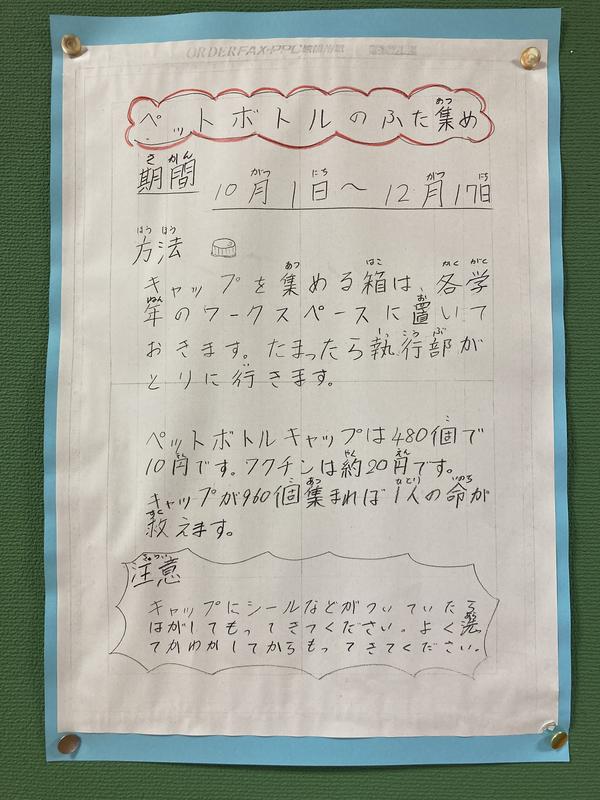 ORDERFAX・PPC
ペットボトルのふた集め
期間
10月1日～12月17日
方法
キャップを集める箱は、各学
年のワークスペースに置いて
おきます。たまったら執行部が
とりに行きます。
ペットボトルキャップは480個で
10円です。ワクチンは約20円です。
キャップが960個集まれば1人の命が
救えます。
注意
キャップにシールなどがついていたら
はがしてもってきてください。よく洗
てかわかしてからもってきてください。